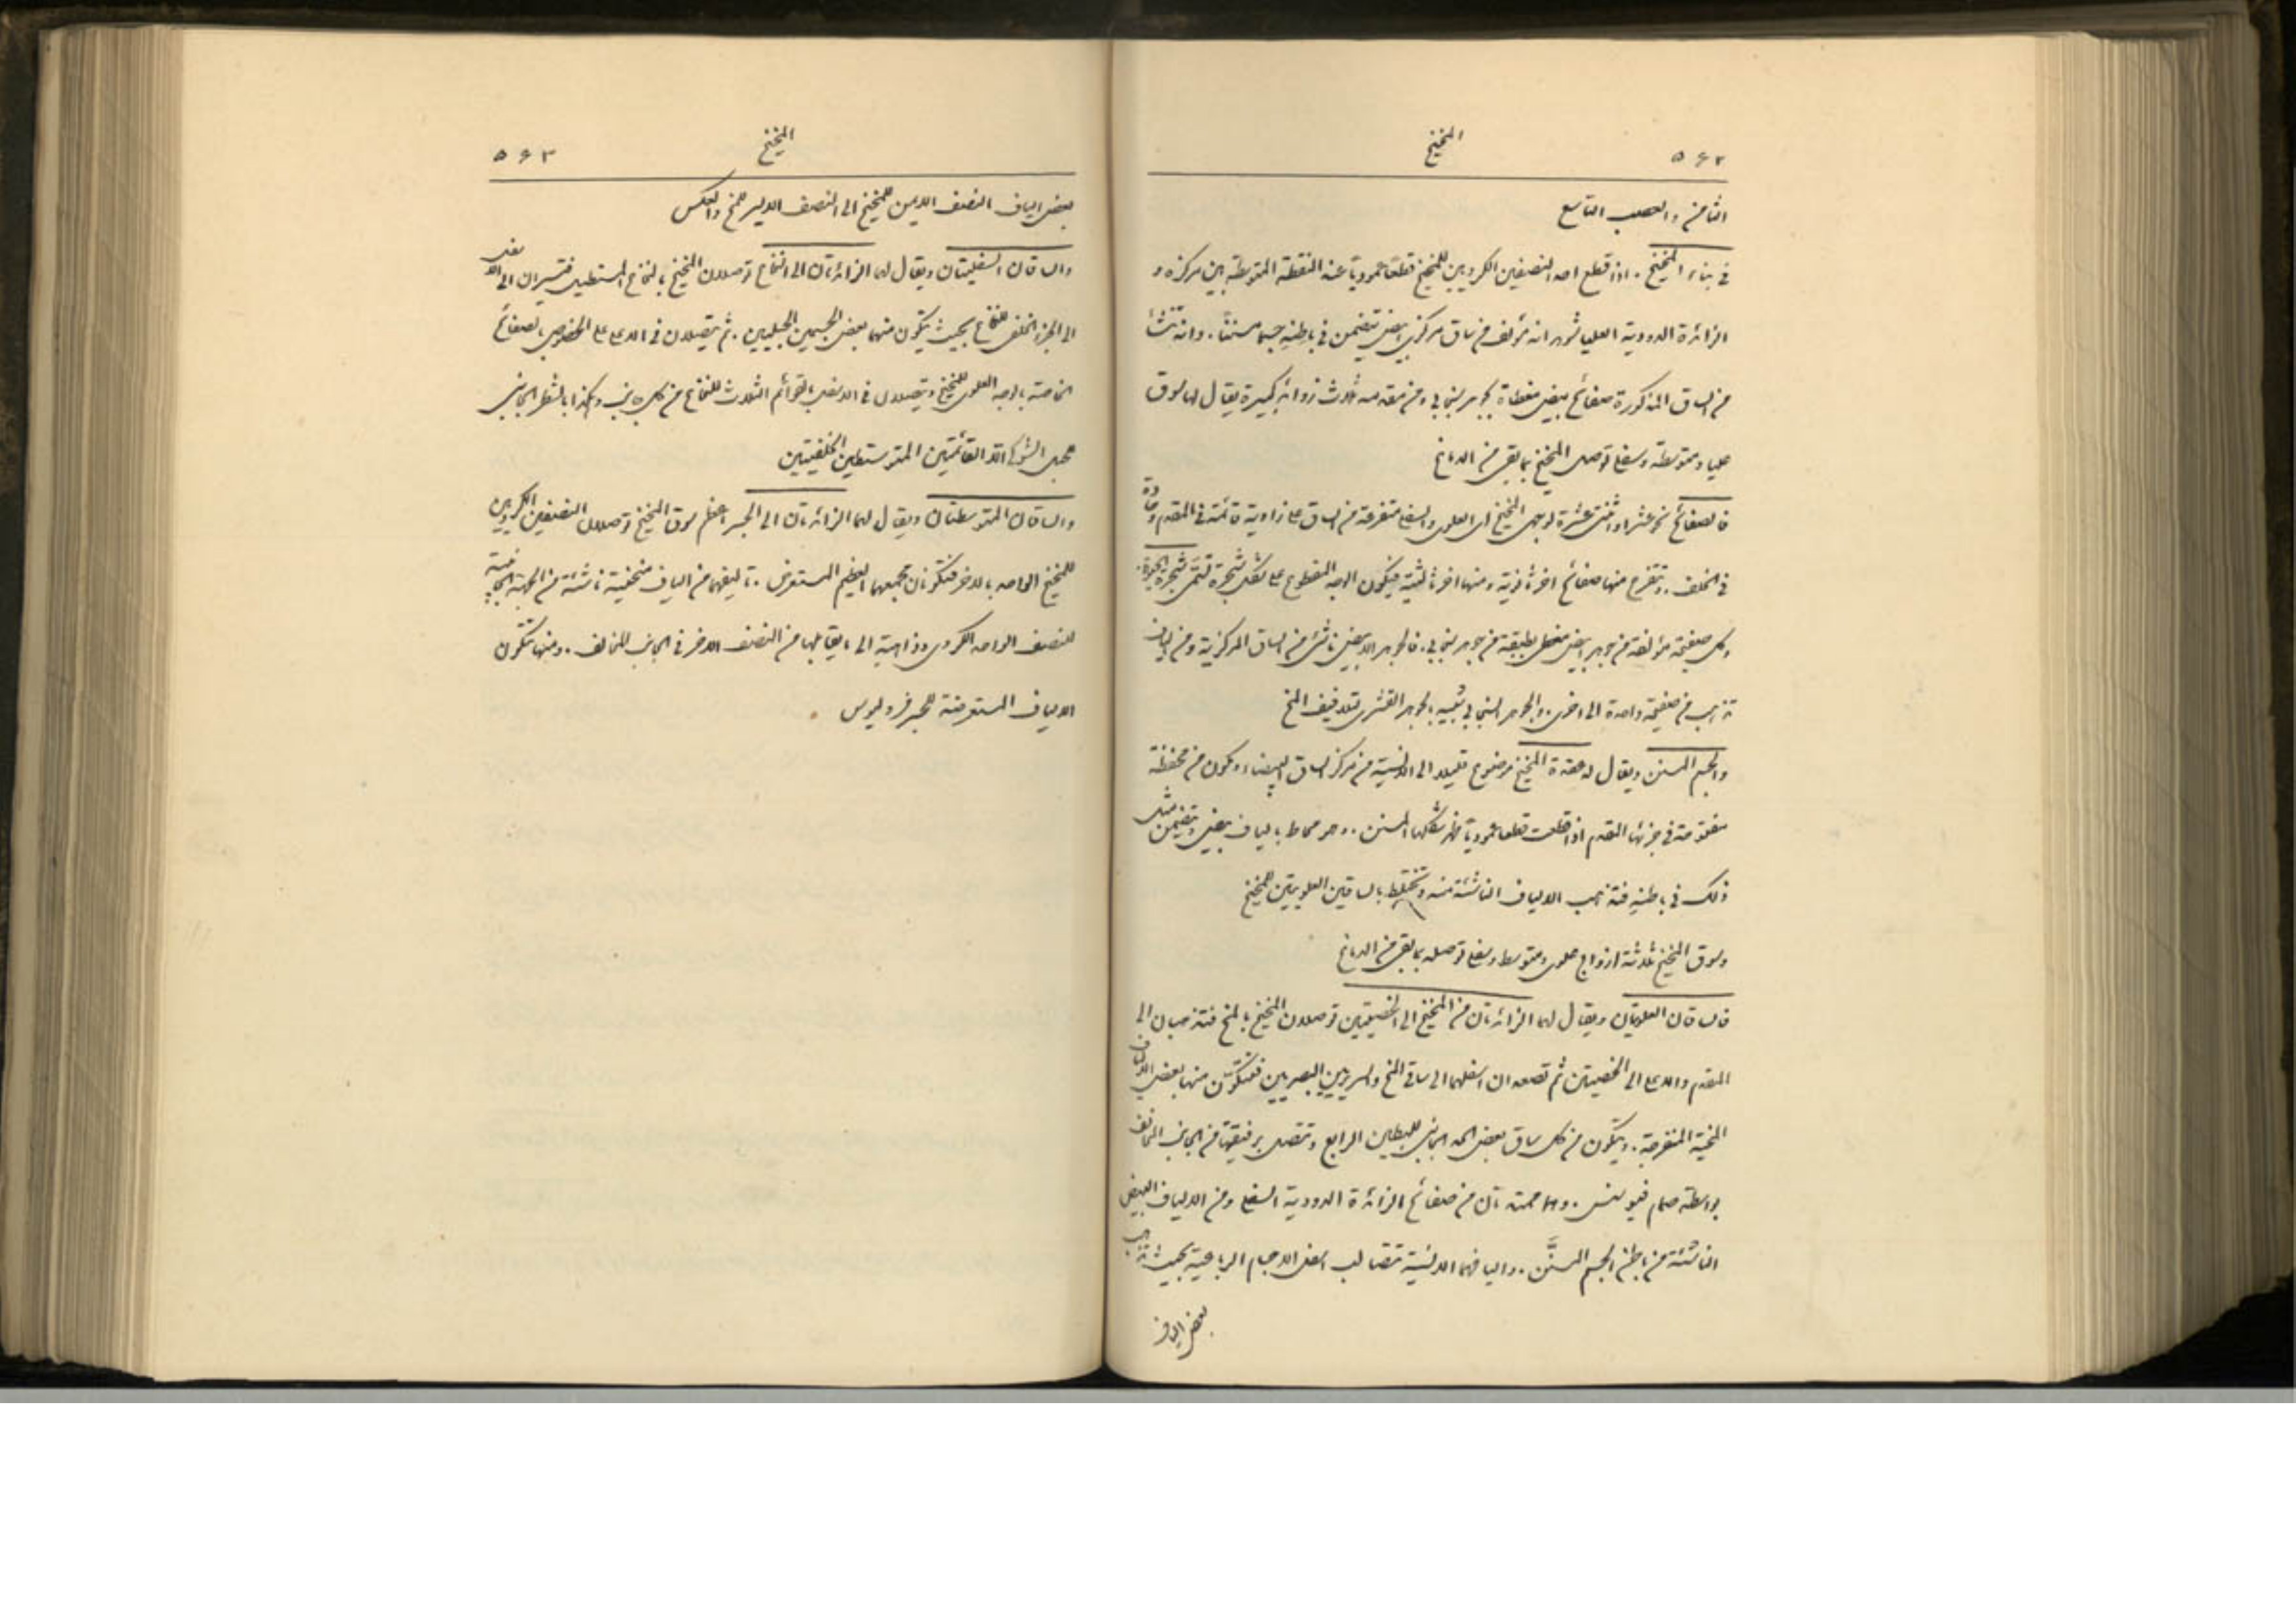 المخيخ
٥٦٢
الثامن والعصب التاسع
في بناء المخيخ . اذا قطع احد النصفين الكرويين للمخيخ قطعًا عموديًّا عند النقطة المتوسطة بين مركزه و
الزائدة الدودية العليا شوهد انه مؤلف من ساق مركزي ابيض يتضمن في باطنهِ جسمًا مسننًا . وانه تنشأ
من الساق المذكورة صفائح بيض مغطاة بجوهر سنجابي ومن مقدمه ثلاث زوائد كبيرة يقال لها سوق
عليا ومتوسطة وسفلى توصل المخيخ بما بقي من الدماغ
فالصفائح نحو عشر او اثنتي عشرة لوجهي المخيخ اي العلوي والسفلي متفرعة من الساق على زاوية قائمة في المقدم وحادة
في الخلف . وتتفرع منها صفائح اخر ثانوية ومنها اخر ثالثية فيكون الوجه المقطوع على شكل شجرة تسمّى شجرة الحيوة .
وكل صفيحة مؤلفة من جوهر ابيض مغطى بطبقة من جوهر سنجابي . فالجوهر الابيض ناشئ من الساق المركزية ومن الياف
تذهب من صفيحة واحدة الى اخرى . والجوهر السنجابي شبيه بالجوهر القشري لتلافيف المخ
والجسم المسنن ويقال له عقدة المخيخ موضوع قليلا الى الانسية من مركز الساق البيضاء ومكون من محفظة
مفتوحة في جزئها المقدم اذا قطعت قطعا عموديًّا ظهر شكلها المسنن . وهو محاط بالياف بيض ويتضمن مثل
ذلك في باطنهِ فتذهب الالياف الناشئة منه وتختلط بالساقين العلويتين للمخيخ
وسوق المخيخ ثلاثة ازواج علوي ومتوسط وسفلي توصله بما بقي من الدماغ
فالساقان العلويتان ويقال لهما الزائدتان من المخيخ الى الخصيتين توصلان المخيخ بالمخ فتذهبان الى
المقدم والاعلى الى الخصيتين ثم تصعدان اسفلهما الى ساقي المخ والسريرين البصريين فتتكوّن منها بعض الالياف
المخية المنفرجة . ويتكون من كل ساق بعض الحد الجانبي للبطين الرابع وتتصل برفيقتها من الجانب المخالف
بواسطة صمام فيوسنس . وهما ممتدتان من صفائح الزائدة الدودية السفلى ومن الالياف البيض
الناشئة من باطن الجسم المسنَّن . واليافهما الانسية تتصالب اسفل الاجسام الرباعية بحيث تذهب
بعض الياف
المخيخ
٥٦٣
بعض الياف النصف الايمن للمخيخ الى النصف الايسر للمخ والعكس
والساقان السفليتان ويقال لهما الزائدتان الى النخاع توصلان المخيخ بالنخاع المستطيل فتسيران الى الاسفل
الى الجزء الخلفي للنخاع بحيث يتكون منهما بعض الجسمين الحبليين . ثم يتصلان في الاعلى على الخصوص بصفائح
الخاصة بالوجه العلوي للمخيخ ويتصلان في الاسفل بالقوائم الثلاث للنخاع من كل جانب وهكذا بالشطر الجانبي
للحبل الشوكي القائمتين المتوسطين الخلفيتين
والساقان المتوسطتان ويقال لهما الزائدتان الى الجسر اعظم سوق المخيخ توصلان النصفين الكرويين
للمخيخ الواحد بالاخر فتكونان بجمعهما العظيم المستعرض . تاليفهما من الياف منحنية ناشئة من الجهة الجانبية
للنصف الواحد الكروي وذاهبة الى ما يقابلها من النصف الاخر في الجانب المخالف . ومنها تتكون
الالياف المستعرضة للجسر فروليوس